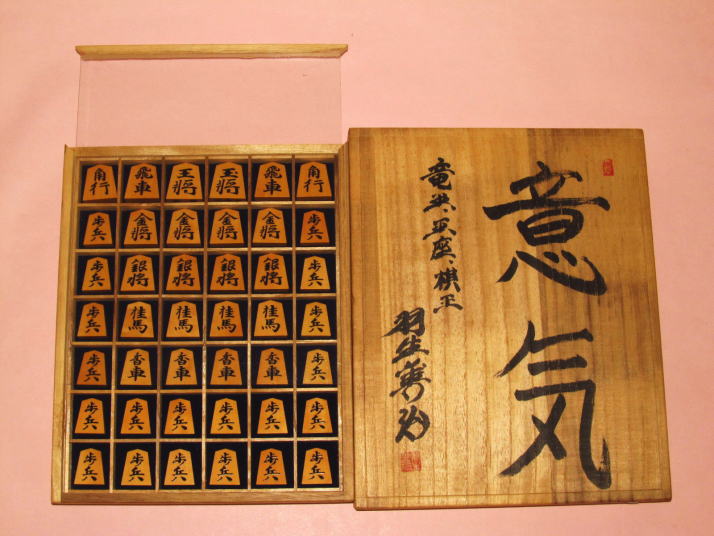 角行 飛車 王将 玉将 飛車 角行
歩兵 金将 金将 金将 金将 歩兵
歩兵 銀将 銀将 銀将 銀将 歩兵
歩兵 桂馬 桂馬 桂馬 桂馬 歩兵
歩兵 香車 香車 香車 香車 歩兵
歩兵 歩兵 歩兵 歩兵 歩兵 歩兵
歩兵 歩兵 歩兵 歩兵 歩兵 歩兵
意気
竜王、王座、棋王
羽生善治